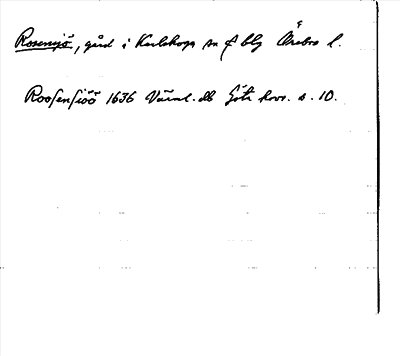 Rosensjö, gård i Karlskoga sn o blg Örebro l.
Roosensiöö 1636 Värml. db Göta hovr. s. 10.